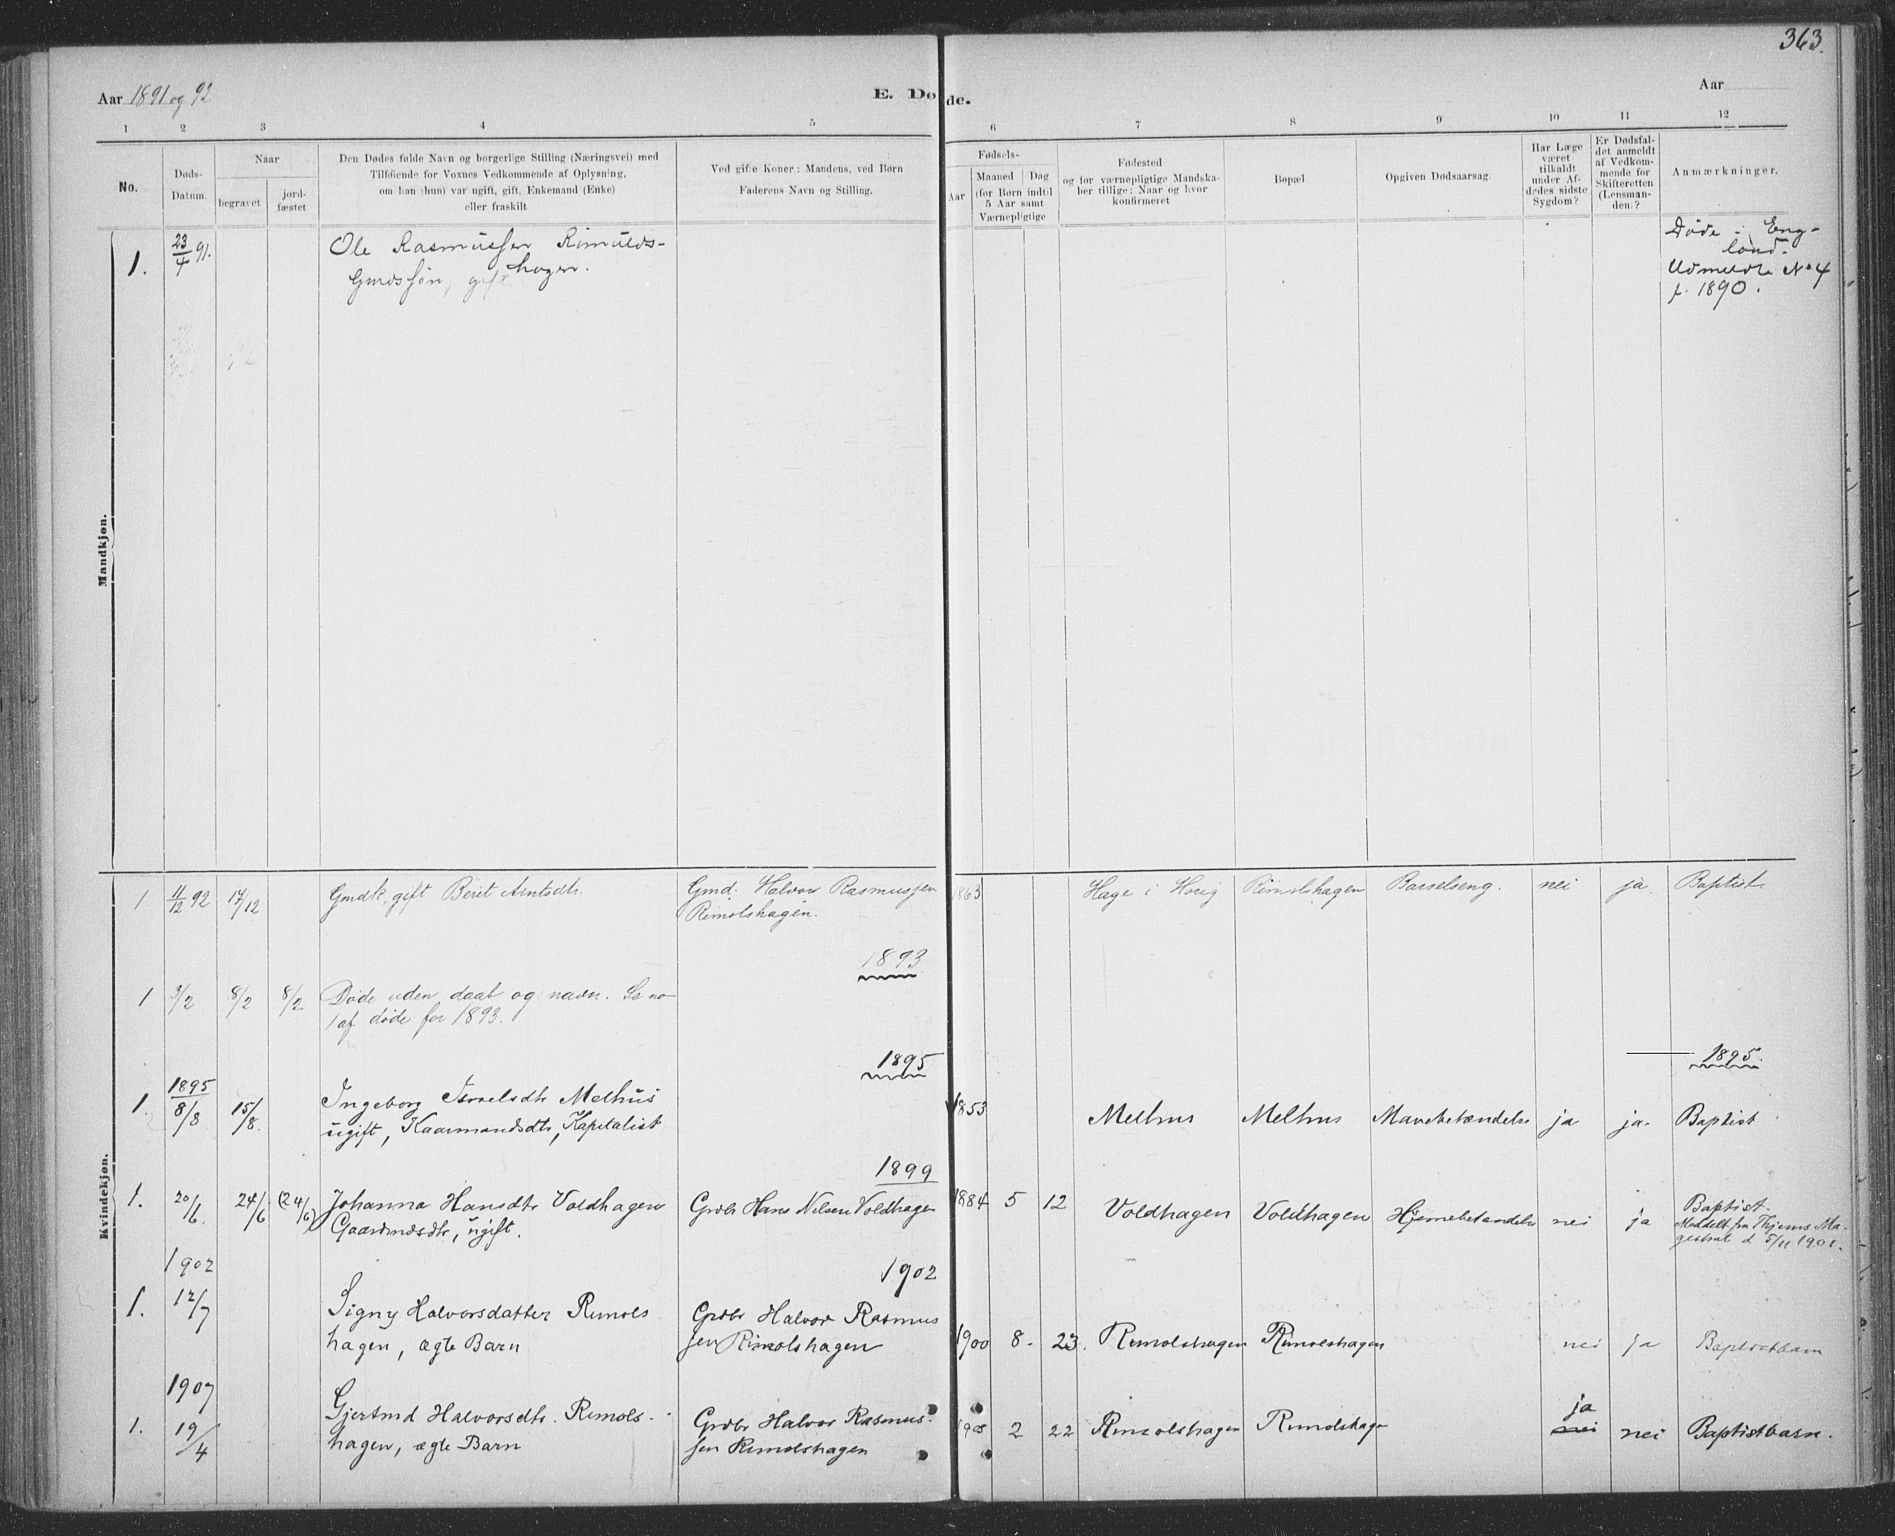 363.
Aar 1891 og 92
E. Døde.
Aar
1 2 3 4 5 6 7 8 9 10 11 12
No.
Døds-
Datum.
Naar
begravet
jord-
fæstet
Den Dødes fulde Navn og borgerlige Stilling (Næringsvei) med
Tilføiende for Voxnes Vedkommende af Oplysning,
om han (hun) var ugift, gift, Enkemand (Enke)
eller fraskilt
Ved gifte Koner: Mandens, ved Børn
Faderens Navn og Stilling.
Fødsels-
Aar
Maaned
Dag
(for Børn indtil
5 Aar samt
Værnepligtige
Fødested
og for værnepligtige Mandska-
ber tillige: Naar og hvor
konfirmeret
Bopæl
Opgiven Dødsaarsag.
Har Læge
været
tilkaldt
under Af-
dødes sidste
Sygdom?
Er Dødsfal-
det anmeldt
af Vedkom-
mende for
Skifteretten
(Lensman-
den)?
Anmærkninger.
Mandkjøn.
1. 23/4 91. Ole Rasmussen Rimulds-
hagen.
Gmdssøn, gift
Døde i Eng-
land.
Udmeldt No 4
f. 1890.
Kvindekjøn.
1 11/12 92 17/12 Gmdk, gift Beret Arntsdtr. Gmd. Halvor Rasmussen 1863 Hage i Horig Rimolshagen Barselseng. nei ja. Baptist
Rimolshagen.
1893
1 3/2 8/2 8/2 Døde uden daab og navn. Se no
1 af døde for 1893.
1895 1895.
1895
1. 8/8 15/8. Ingeborg Israelsdtr Melhus 1853 Melhus Melhus Mavebetændelse ja ja. Baptist
ugift, Kaarmandsdtr, Kapitalist
1899
1. 20/6. 24/6 (24/6) Johanna Hansdtr Voldhagen Grdbr Hans Nilsen Voldhagen 1884 5 12 Voldhagen Voldhagen Hjernebetændelse nei ja Baptist.
Gaardmdsdtr, ugift.
Meddelt fra Thjems Ma-
gistrat d 5/11 1901.
1902 1902
1. 12/7 Signy Halvorsdatter Rimols Grdbr Halvor Rasmus
hagen, ægte Barn sen Rimolshagen 1900 8. 23. Rimolshagen Rimolshagen nei ja Baptistbarn
1907
1. 19/4 Gjertrud Halvorsdtr. Rimols- Grdbr Halvor Rasmus- 1905 2 22 Rimolshagen Rimolshagen ja nei nei Baptistbarn.
hagen, ægte Barn sen Rimolshagen